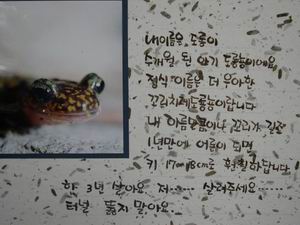 내이름은, 도롱이
5개월 된 아기 도롱뇽이에요
정식 이름은 더 우아한
꼬리치레도롱뇽이랍니다
내 아름답고 꼬리가 길죠
1년만에 어른이 되면
키 17~18cm로 훤칠하답니다!
한 3년 살아요 저..... 살려주세요......
터널 뚫지 말아요